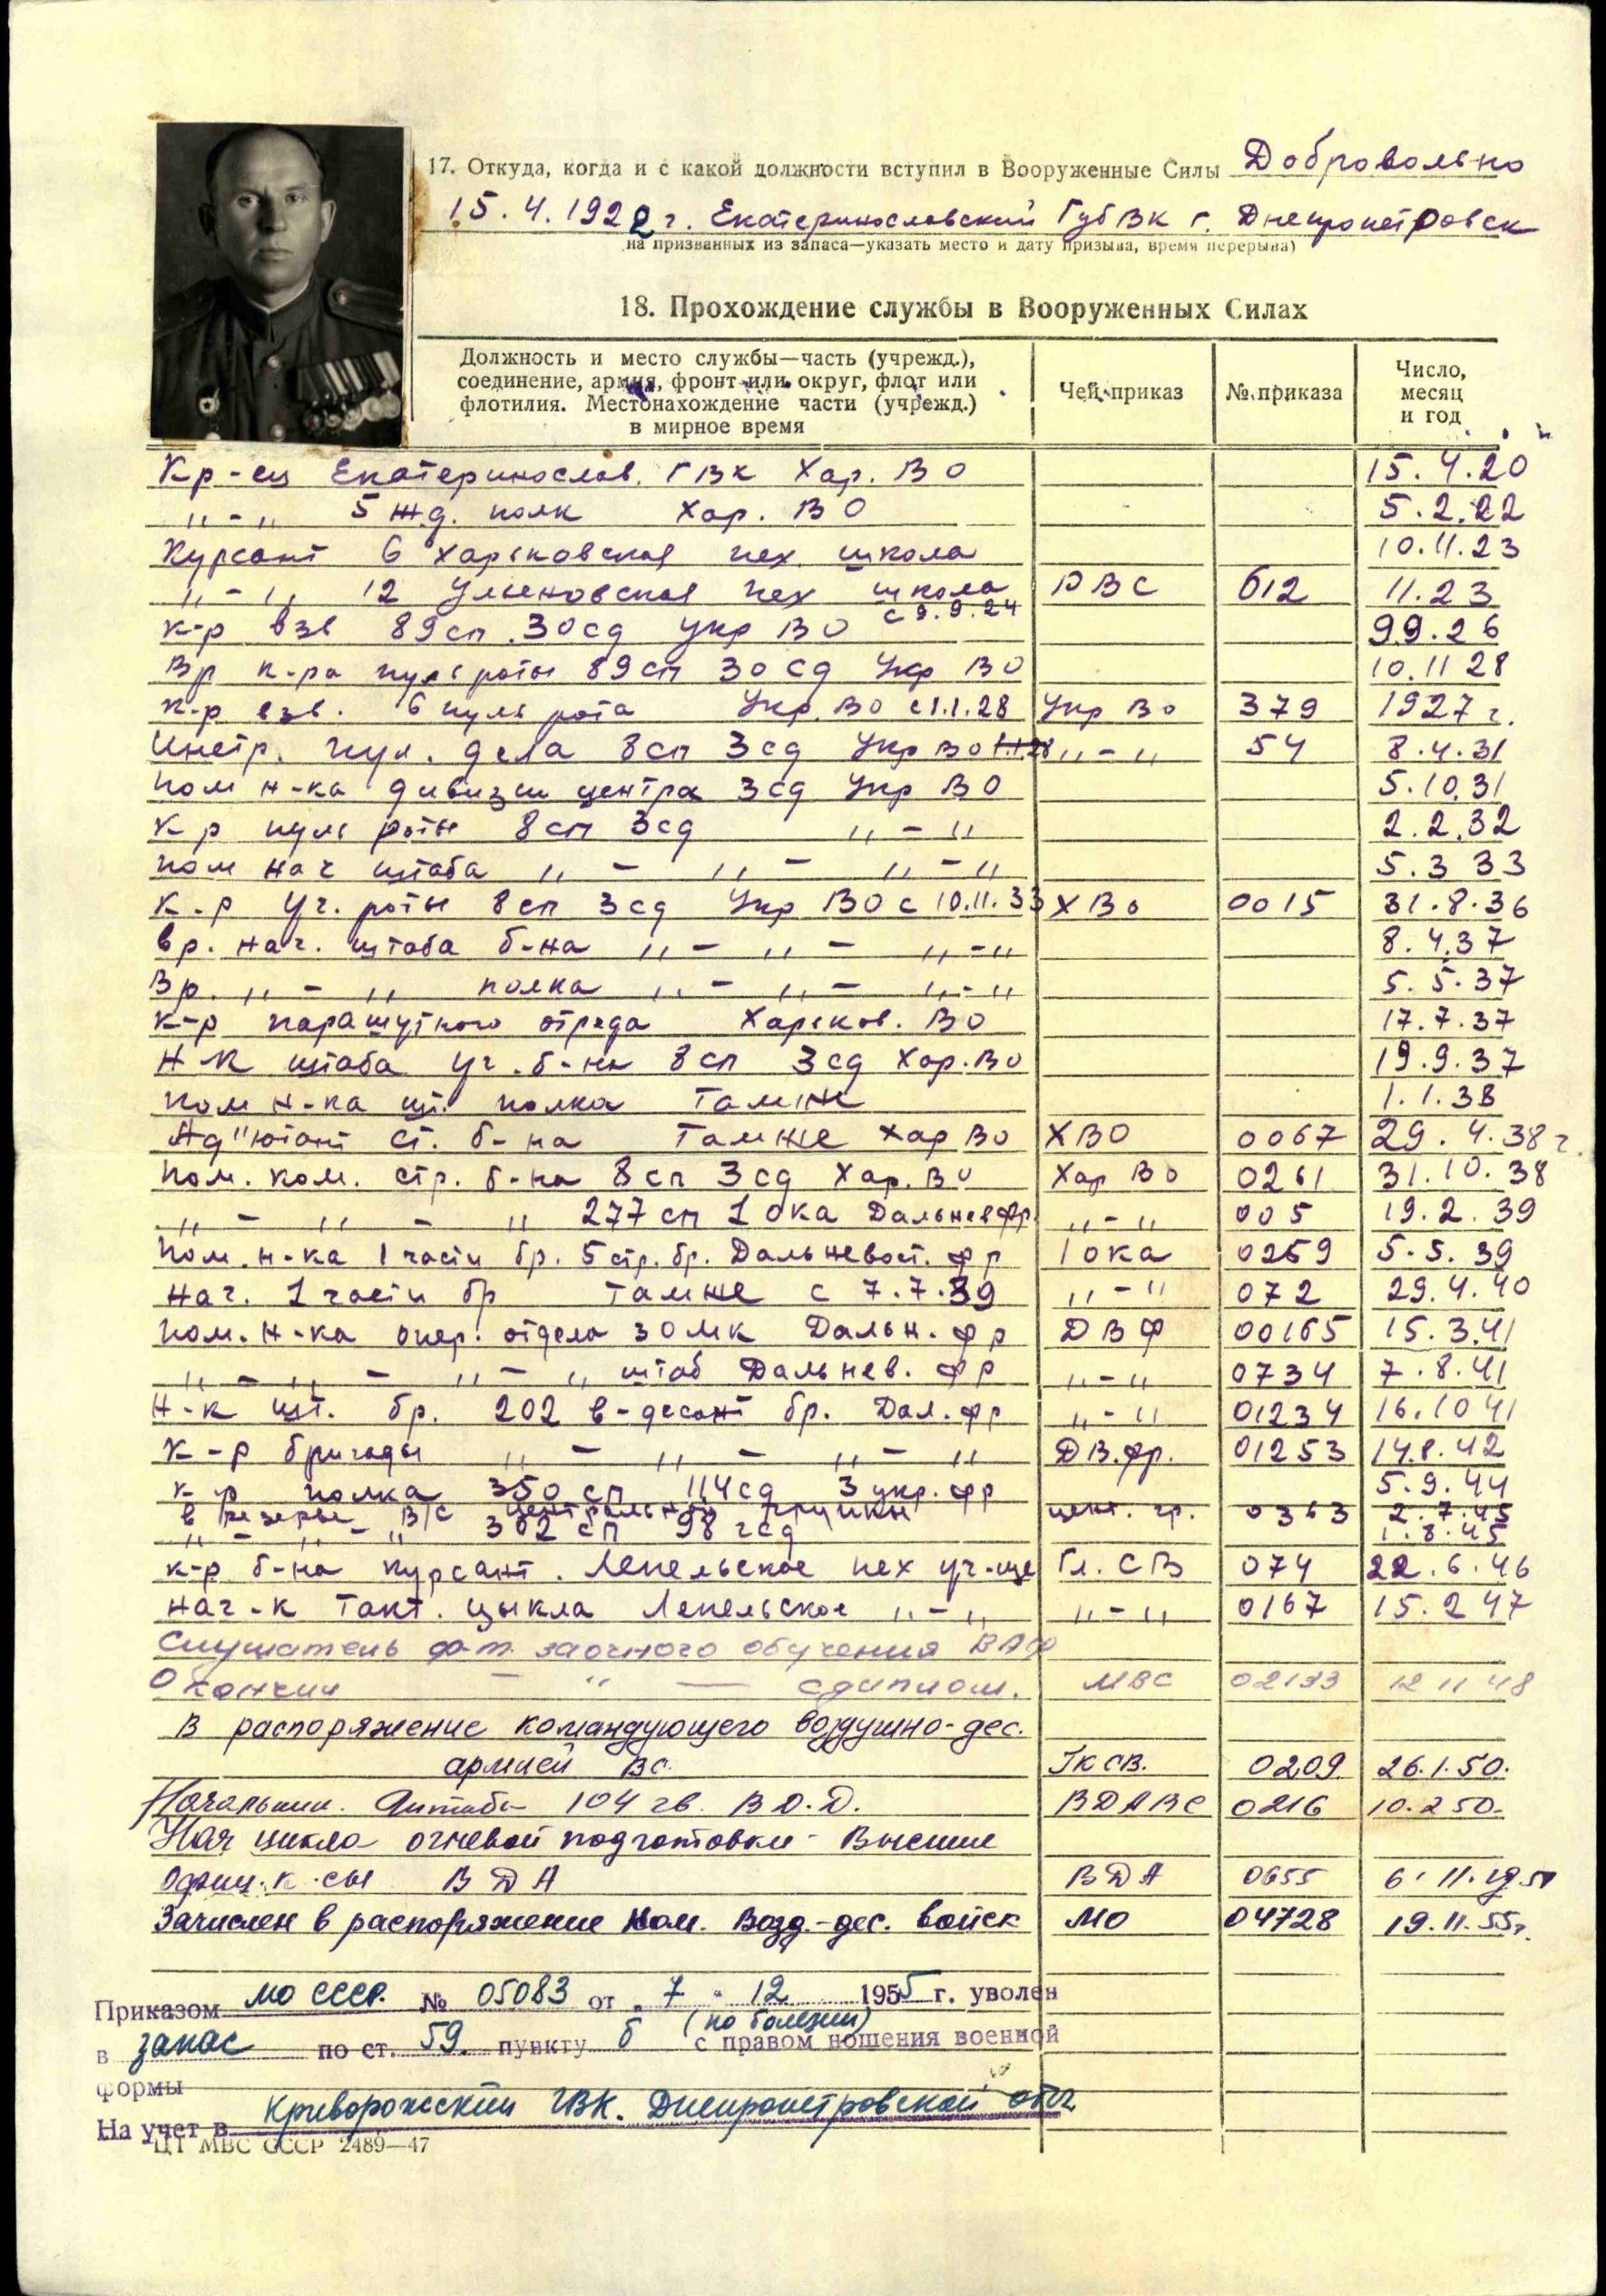 17. Откуда, когда и с какой должности вступил в Вооруженные Силы Добровольно
15.4.1922 г. Екатеринославский ГубВК г. Днепропетровск
на призванных из запаса—указать место и дату призыва, время перерыва)
18. Прохождение службы в Вооруженных Силах
Должность и место службы—часть (учрежд.), соединение, армия, фронт или округ, флот или флотилия. Местонахождение части (учрежд.) в мирное время | Чей приказ | № приказа | Число, месяц и год
Кр-ец Екатеринослав. ГВК Хар. ВО 15.4.20
„-„ 5 ж.д. полк Хар. ВО 5.2.22
Курсант 6 Харьковская пех. школа 10.11.23
„-„ 12 Ульеновская пех школа РВС 612 11.23
к-р взв 89сп. 30сд Укр ВО с 9.9.24 99.26
Вр к-ра пуль роты 89сп 30 сд Укр ВО 10.11 28
к-р взв. 6 пуль рота Укр. ВО с 1.1.28 Укр Во 379 1927 г.
Инстр. пул. дела 8сп 3сд Укр ВО 1.1.28 „-„ 54 8.4.31
Пом н-ка дивизи центра 3сд Укр ВО 5.10.31
К р пуль роты 8сп 3сд „-„ 2.2.32
пом нач штаба „ - „ - „-„ 5.3 33
К-р уч. роты 8сп 3сд Укр ВО с 10.11.33 ХВо 0015 31.8.36
вр. нач. штаба б-на „ - „ - „-„ 8.4.37
Вр. „ - „ полка „ - „ - „-„ 5.5.37
к-р парашутного отряда Харьков. ВО 17.7.37
Н-К штаба уч. б-на 8сп 3сд Хар. ВО 19.9.37
пом н-ка шт. полка Тамже 1.1.38
Ад"ютант ст. б-на Тамже Хар Во ХВО 0067 29.4.38 г.
Пом. ком. стр. б-на 8сп 3сд Хар. Во Хар Во 0261 31.10.38
„ - „ - „ 277сп 1 ока Дальневфр. „-„ 005 19.2.39
Пом. н-ка 1 части бр. 5 стр. бр. Дальневост. фр 1 ока 0259 5.5.39
нач. 1 части бр Тамже с 7.7.39 „-„ 072 29.4.40
пом. н-ка опер. отдела 30 мк Дальн. фр ДВФ 00165 15.3.41
„ - „ - „ - „ штаб Дальнев. фр „-„ 0734 7.8.41
Н-к шт. бр. 202 в-десант бр. Дал. фр „-„ 01234 16.10 41
К-р бригады „ - „ - „ - „ ДВ.фр. 01253 14.8.42
к-р полка 350 сп 114сд 3 укр. фр 5.9.44
в резерве В/С Центральной группы цент. гр. 0363 2.7.45
„ - „ - „ 302 сп 98 гсд 1.8.45
к-р б-на курсант. Лепельское пех уч-ще Гл. СВ 074 22.6.46
нач-к такт. цыкла Лепельское „-„ „-„ 0167 15.2 47
Слушатель ф-т. заочного обучения ВАФ
Окончил — „ — с диплом. МВС 02133 12 11 48
В распоряжение командующего воздушно-дес.
армией ВС. ГКСВ. 0209 26.1.50.
Начальник. Штаба 104 гв. В.Д.Д. ВДАВС 0216 10.2 50.
Нач цикла огневой подготовки Высшие
офиц. к-сы ВДА ВДА 0655 6.11.1951
Зачислен в распоряжение Ком. Возд.-дес. войск МО 04728 19.11.55г.
Приказом МО СССР. № 05083 от „7“ 12 1955 г. уволен
в запас по ст. 59. пункту б (по болезни) с правом ношения военной
формы
На учет в Криворожский ГВК. Днепропетровской обл.
ЦТ МВС СССР 2489—47